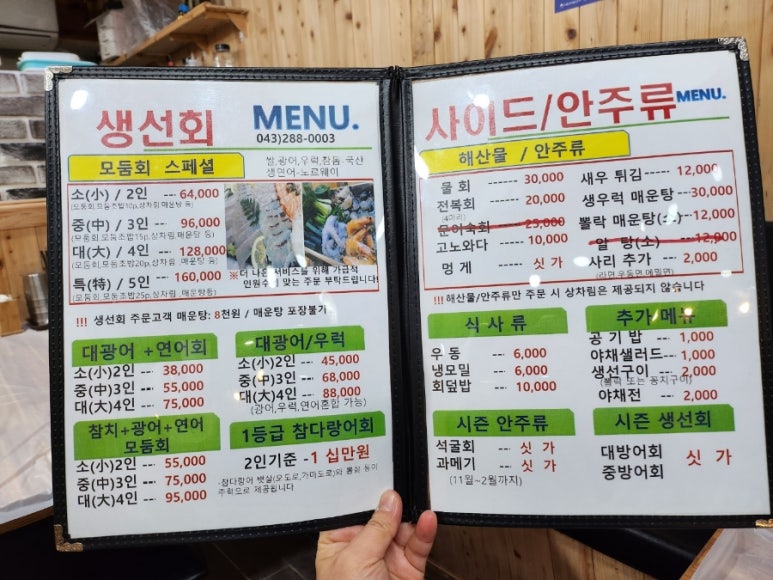 생선회 MENU.
043)288-0003
모둠회 스페셜
쌀,광어,우럭,참돔-국산
생연어-노르웨이
소(小) / 2인 --- 64,000
(모둠회,모둠초밥10p,상차림,매운탕 등)
중(中) / 3인 --- 96,000
(모둠회,모둠초밥15p,상차림,매운탕 등)
대(大) / 4인 --- 128,000
(모둠회,모둠초밥20p,상차림, 매운탕 등)
특(特) / 5인 --- 160,000
(모둠회,모둠초밥25p,상차림 ,매운탕등)
※더 나은 서비스를 위해 가급적
인원수에 맞는 주문 부탁드립니다!
!!! 생선회 주문고객 매운탕: 8천원 / 매운탕 포장불가
대광어 +연어회
소(小)2인 --- 38,000
중(中)3인 --- 55,000
대(大)4인 --- 75,000
대광어/우럭
소(小)2인 --- 45,000
중(中)3인 --- 68,000
대(大)4인 --- 88,000
(광어,우럭,연어혼합 가능)
참치+광어+연어
모둠회
소(小)2인 --- 55,000
중(中)3인 --- 75,000
대(大)4인 --- 95,000
1등급 참다랑어회
2인기준 -1 십만원
-참다랑어 뱃살(오도로,가마도로)와 볼회 등이
주회으로 제공됩니다
사이드/안주류 MENU.
해산물 / 안주류
물 회 ------ 30,000
전복회 ------ 20,000
(4마리)
문어숙회 ------ 25,000
고노와다 ------ 10,000
멍 게 ------ 싯 가
새우 튀김----- 12,000
생우럭 매운탕 ---30,000
뽈락 매운탕(소)---12,000
알 탕(소) ---12,000
사리 추가 --- 2,000
(라면,우동면,메밀면)
!!! 해산물/안주류만 주문 시 상차림은 제공되지 않습니다
식 사 류
우 동 --- 6,000
냉모밀 --- 6,000
회덮밥 --- 10,000
추가 메뉴
공 기 밥 --- 1,000
야채샐러드--- 1,000
생선구이 --- 2,000
(뽈락 또는 꽁치구이)
야채전 --- 2,000
시즌 안주류
석굴회 --- 싯 가
과메기 --- 싯 가
(11월~2월까지)
시즌 생선회
대방어회
중방어회
싯 가